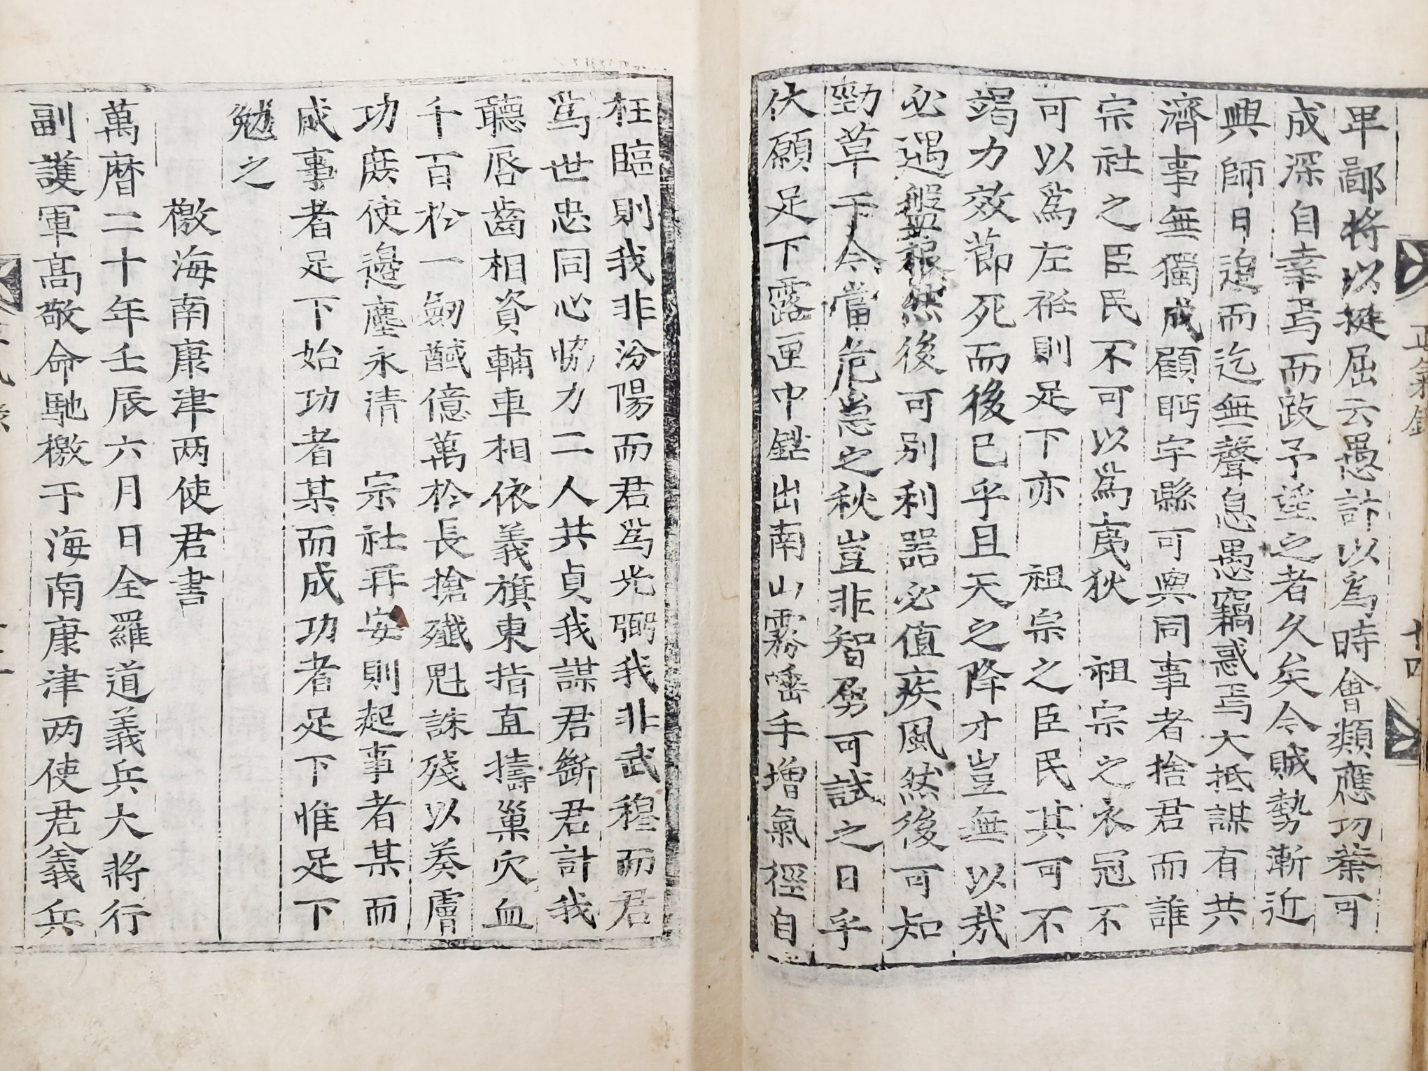 畢鄙將以挺屈云愚計以爲時會類應功業可
成深自幸焉而跂予望之者久矣今賊勢漸近
興師日迫而迄無聲息愚竊惑焉大抵謀有共
濟事無獨成顧眄宇縣可與同事者捨君而誰
宗社之臣民不可以爲夷狄 祖宗之衣冠不
可以爲左袵則足下亦 祖宗之臣民其可不
竭力效節死而後已乎且天之降才豈無以哉
必遇盤根然後可別利器必值疾風然後可知
勁草于今當危急之秋豈非智勇可試之日乎
伏願足下露匣中鋩出南山霧嶓手增氣徑自
正氣錄
十四
枉臨則我非汾陽而君爲光弼我非武穆而君
爲世忠同心恊力二人共貞我謀君斷君計我
聽唇齒相資輔車相依義旗東指直擣巢穴血
千百於一劒馘億萬於長搶殲魁誅殘以奏膚
功庶使邊塵永清 宗社再安則起事者某而
成事者足下始功者某而成功者足下惟足下
勉之
檄海南康津两使君書
萬曆二十年壬辰六月日全羅道義兵大將行
副護軍高敬命馳檄于海南康津两使君義兵